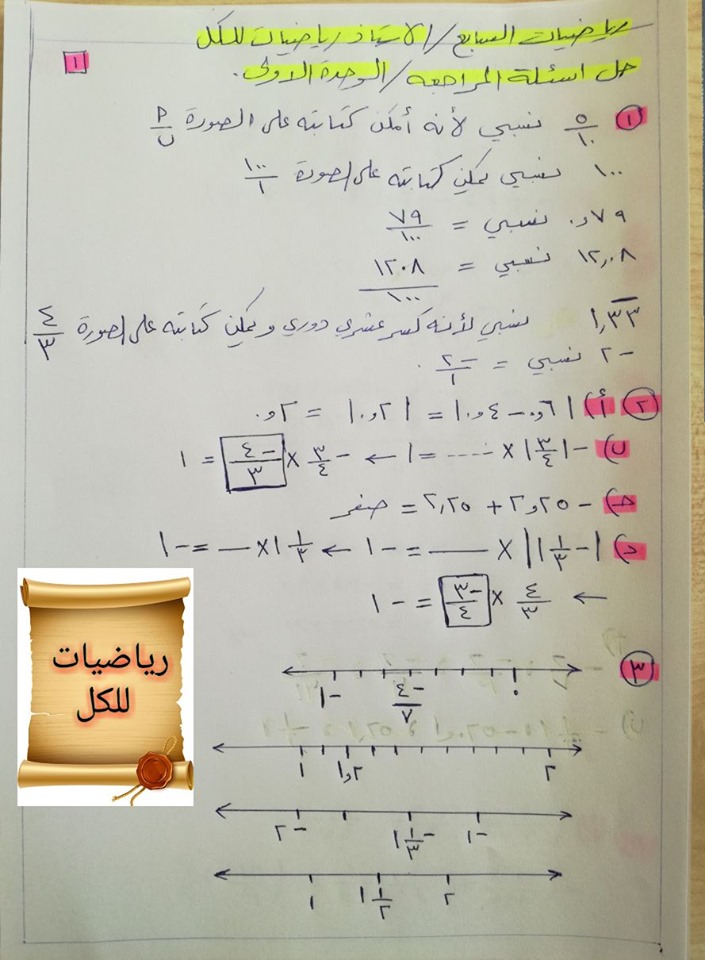 رياضيات السابع / الاستاذ رياضيات للكل
حل اسئلة المراجعه / الوحدة الاولى.
١
① ٥/١٠ نسبي لأنه أمكن كتابته على الصورة أ/ب
١٠٠ نسبي يمكن كتابته على صورة ١٠٠/١
٠,٧٩ نسبي = ٧٩/١٠٠
١٢,٠٨ نسبي = ١٢٠٨/١٠٠
١,٣٣ نسبي لأنه كسر عشري دوري ويمكن كتابته على صورة ٤/٣
-٢ نسبي = -٢/١.
② أ) |٠,٦ - ٠,٤| = |٠,٢| = ٠,٢
ب) -|٣/٤| × ..... = ١ ← -٣/٤ × -٤/٣ = ١
جـ) -٢,٢٥ + ٢,٢٥ = صفر
د) |-١ ١/٣| × ___ = -١ ← ١ ١/٣ × __ = -١
← ٤/٣ × -٣/٤ = -١
③
-١ -٤/٧ ٠
١ ١,٢ ٢
-٢ -١ ١/٣ -١
١ ١ ١/٢ ٢
رياضيات
للكل